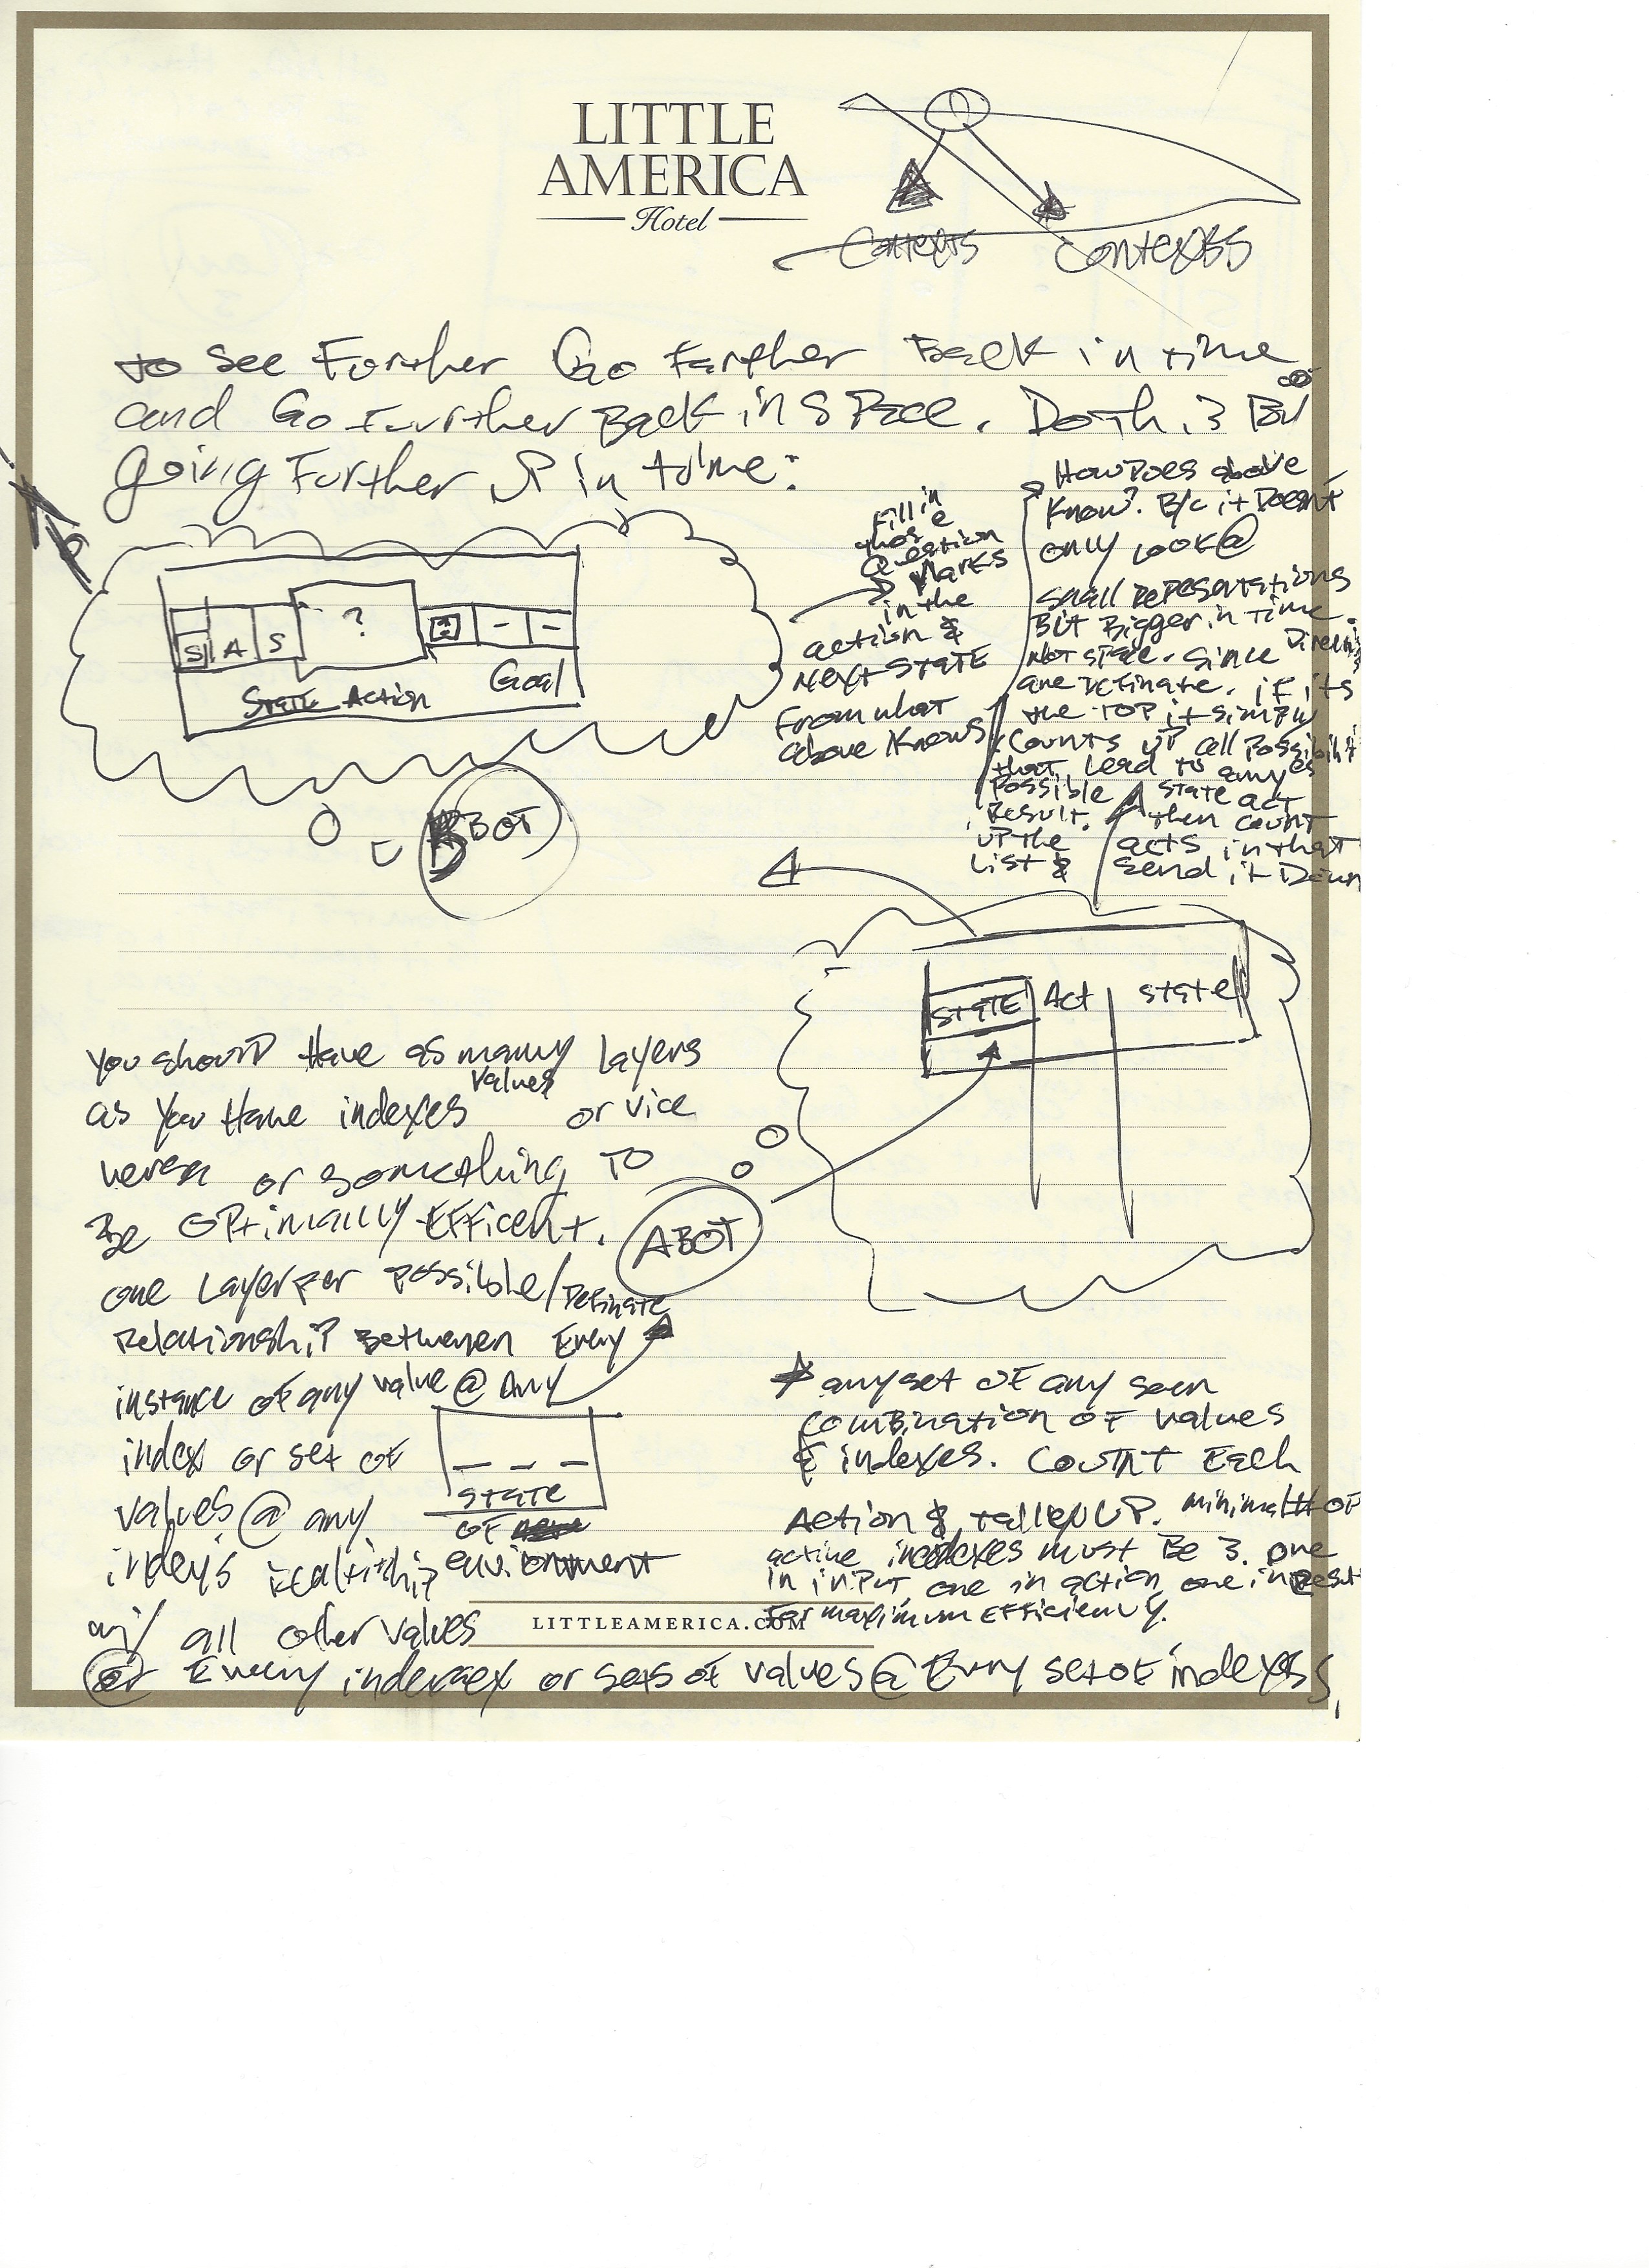 LITTLE
AMERICA
Hotel
Contexts
Contexts
to see Further Go Farther Back in time
and Go Further Back in space. Do this By
going Further UP in time:
Fill in
Question
Marks
in the
action &
Next State
From what
above Knows
How Does above
Know? B/c it Doesn't
only look@
small representations
But Bigger in time.
Not space. Since
are Definate. if its
the TOP it simply
Counts up all Possibilities
that lead to any
Possible state act
Result. then count
up the acts in that
List & send it Down
S A S ?
State Action Goal
BOT
STATE Act state
You should Have as many Layers
values
as You Have indexes or vice
versa or something to
Be optimally Efficent.
ABOT
one Layer per possible/Definate
Relationship Between Every
instance of any value @ Any
index or set of
values @ any
state
of
environment
w/ all other values
or Every index or sets of values @ Every set of indexes,
any set of any seen
combination of values
& indexes. Count Each
Action & talley UP. minimal # of
active indexes must Be 3. one
in input one in action one in Result
For maximum EFFiciency.
LITTLEAMERICA.COM